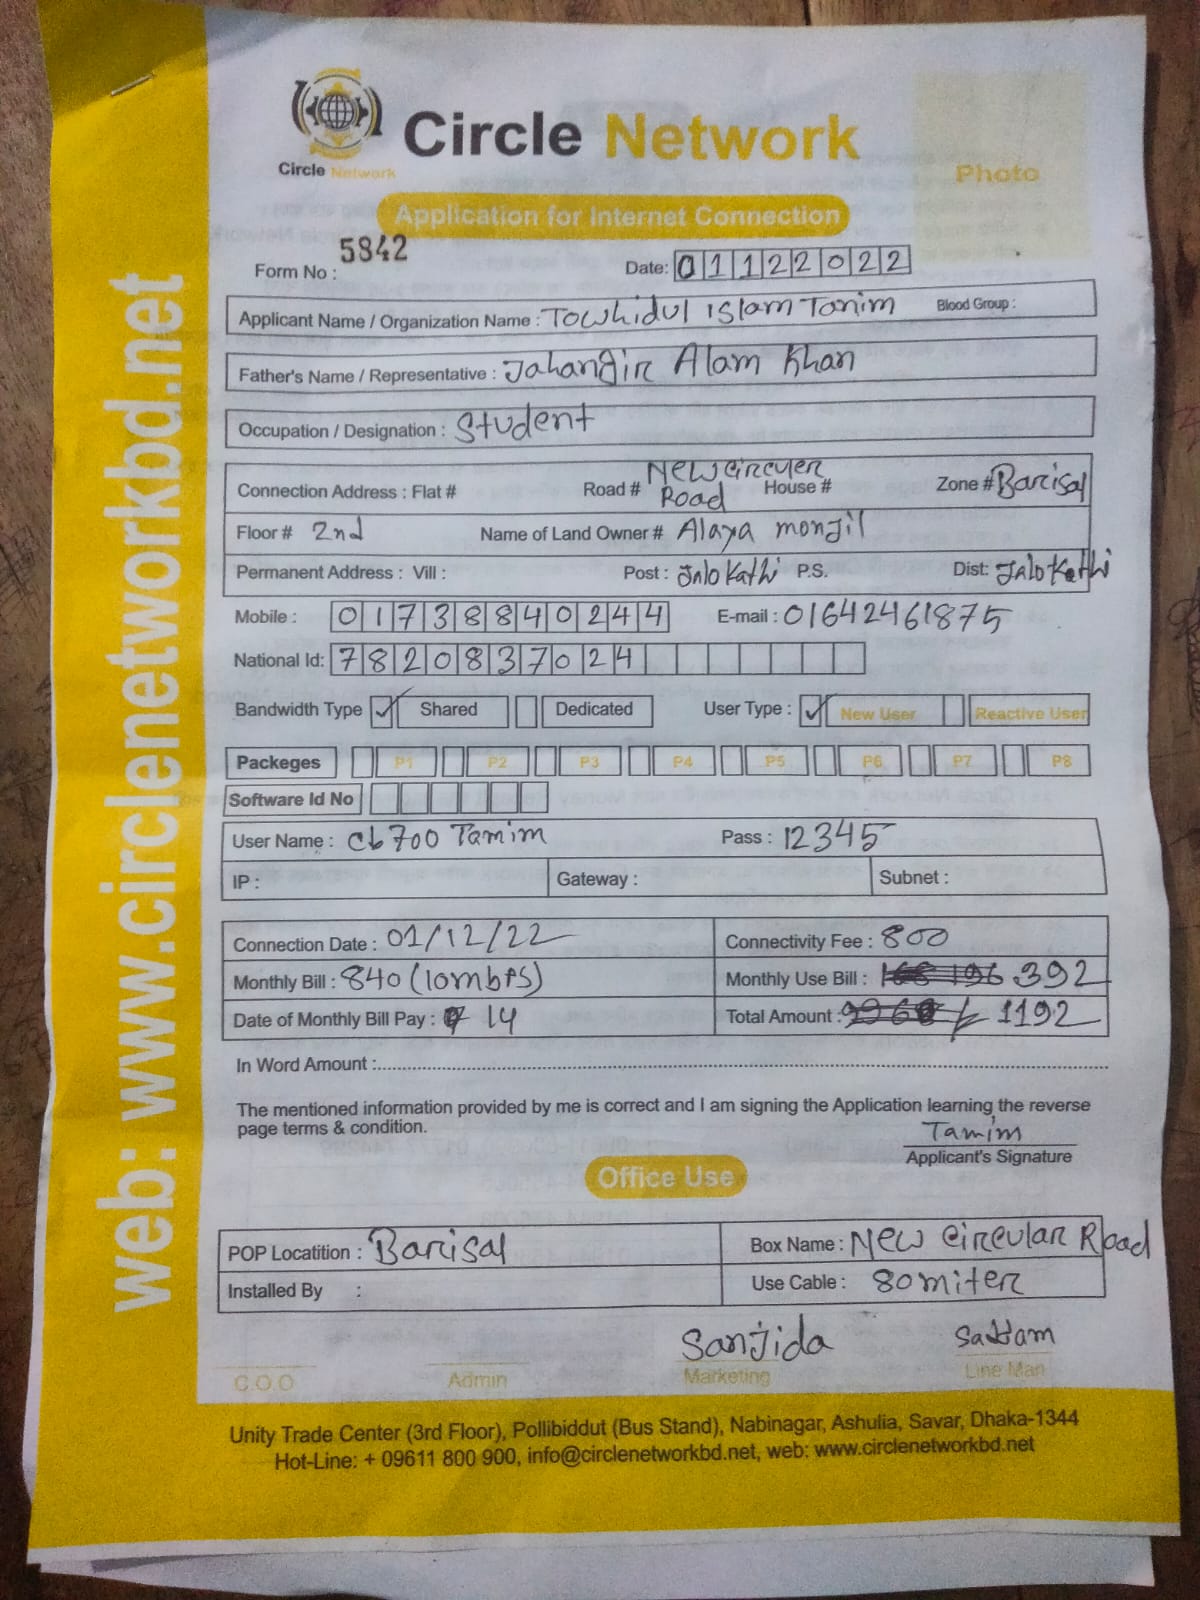 Circle Network
Circle Network
Photo
Application for Internet Connection
Form No : 5842
Date: 01122022
Applicant Name / Organization Name : Towhidul islam Tamim Blood Group :
Father's Name / Representative : Jahangir Alam Khan
Occupation / Designation : Student
Connection Address : Flat # Road # New circuler Road House # Zone # Barisal
Floor # 2nd Name of Land Owner # Alaya monjil
Permanent Address : Vill : Post : Jalokathi P.S. Dist: Jalokathi
Mobile : 01738840244 E-mail : 01642461875
National Id: 7820837024
Bandwidth Type Shared Dedicated User Type : New User Reactive User
Packeges P1 P2 P3 P4 P5 P6 P7 P8
Software Id No
User Name : cb700 Tamim Pass : 12345
IP : Gateway : Subnet :
Connection Date : 01/12/22 Connectivity Fee : 800
Monthly Bill : 840 (10mbps) Monthly Use Bill : 392
Date of Monthly Bill Pay : 14 Total Amount : 1192
In Word Amount :
The mentioned information provided by me is correct and I am signing the Application learning the reverse
page terms & condition.
Tamim
Applicant's Signature
Office Use
POP Locatition : Barisal Box Name : New Circular Road
Installed By : Use Cable : 80 miter
Sanjida Saddam
C.O.O Admin Marketing Line Man
Unity Trade Center (3rd Floor), Pollibiddut (Bus Stand), Nabinagar, Ashulia, Savar, Dhaka-1344
Hot-Line: + 09611 800 900, info@circlenetworkbd.net, web: www.circlenetworkbd.net
web: www.circlenetworkbd.net